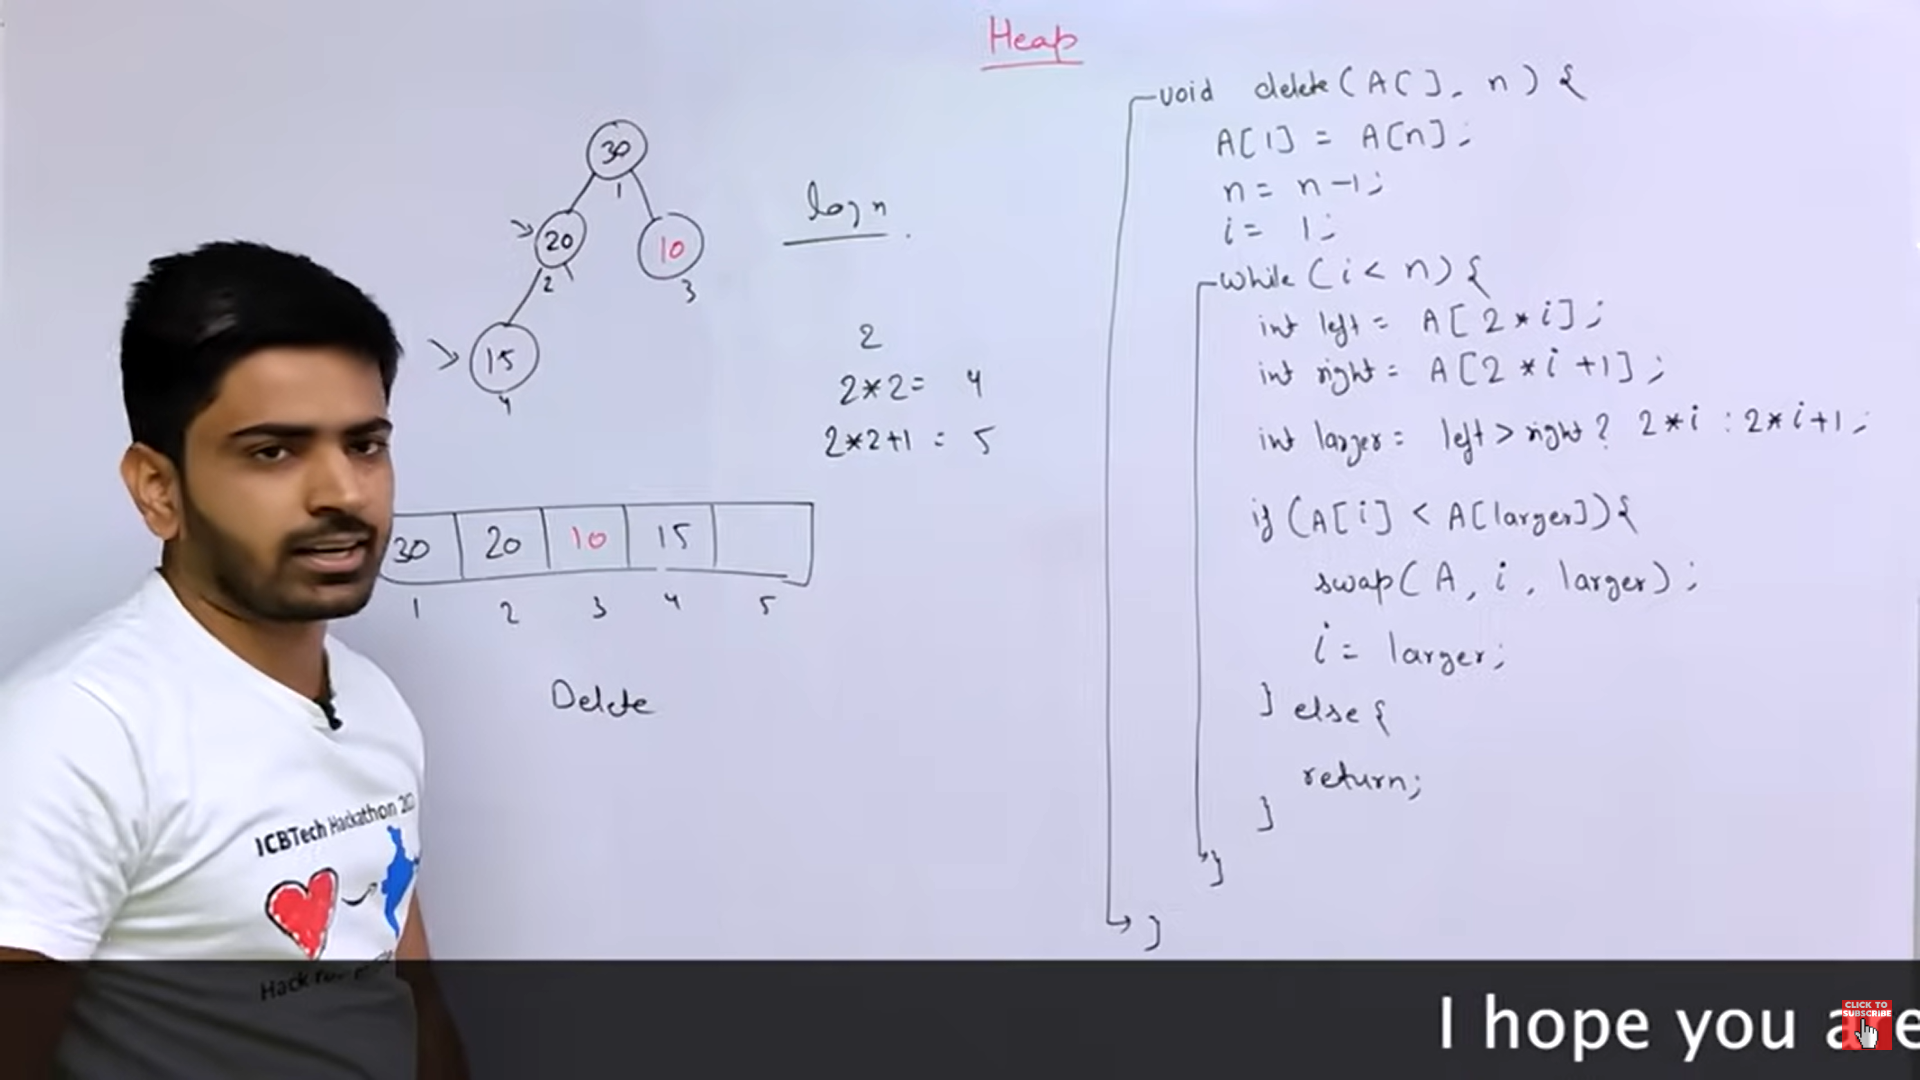 Heap
30
1
20
2
10
3
15
4
log n
2
2*2= 4
2*2+1 = 5
30 20 10 15
1 2 3 4 5
Delete
void delete(A[], n) {
A[1] = A[n];
n = n-1;
i = 1;
while (i < n) {
int left = A[2*i];
int right = A[2*i+1];
int larger = left > right ? 2*i : 2*i+1;
if (A[i] < A[larger]) {
swap(A, i, larger);
i = larger;
} else {
return;
}
}
}
ICBTech Hackathon
Hack
I hope you are
CLICK TO
SUBSCRIBE